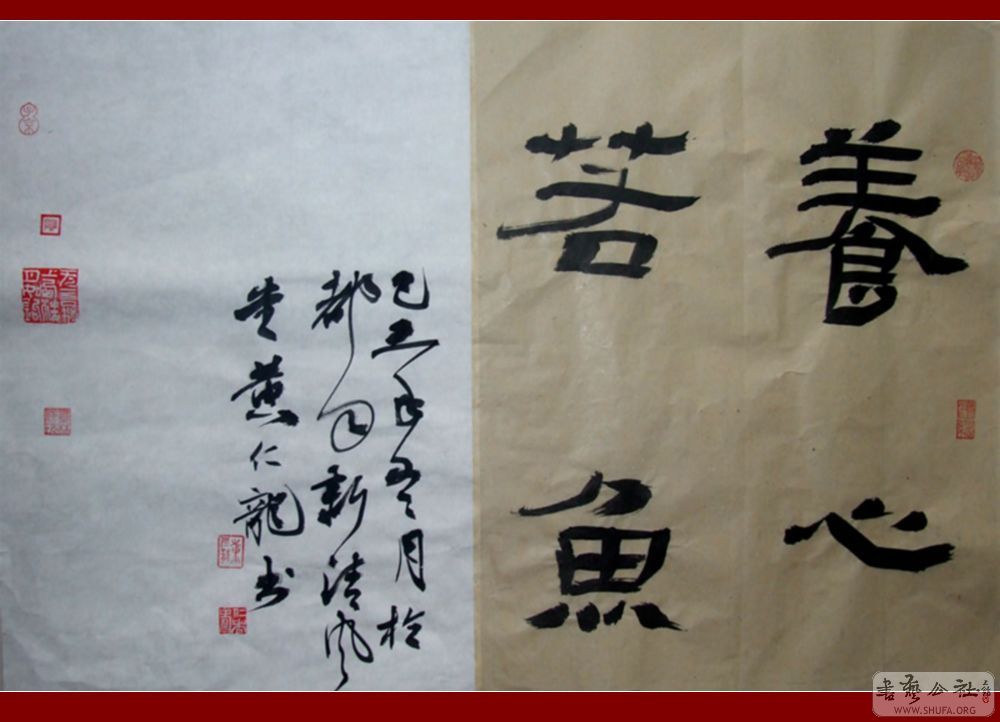 養心
若魚
己丑年月於
都匀新清风
堂黄仁龍书
書藝公社
WWW.SHUFA.ORG